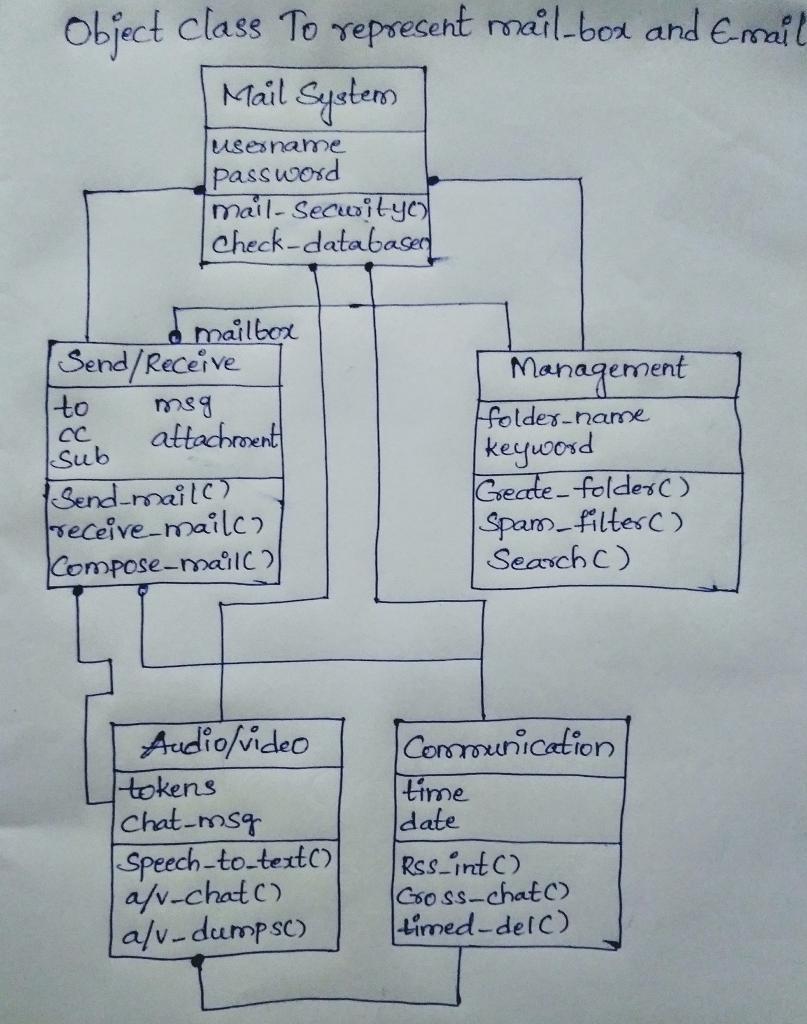 Object Class To represent mail-box and E-mail
Mail System
username
password
mail-Security()
Check-database()
mailbox
Send/Receive
to msg
cc attachment
Sub
Send-mail()
receive-mail()
Compose-mail()
Management
folder-name
keyword
Create-folder()
Spam-filter()
Search()
Audio/video
tokens
Chat-msg
Speech-to-text()
a/v-chat()
a/v-dumps()
Communication
time
date
Rss-int()
Cross-chat()
timed-del()